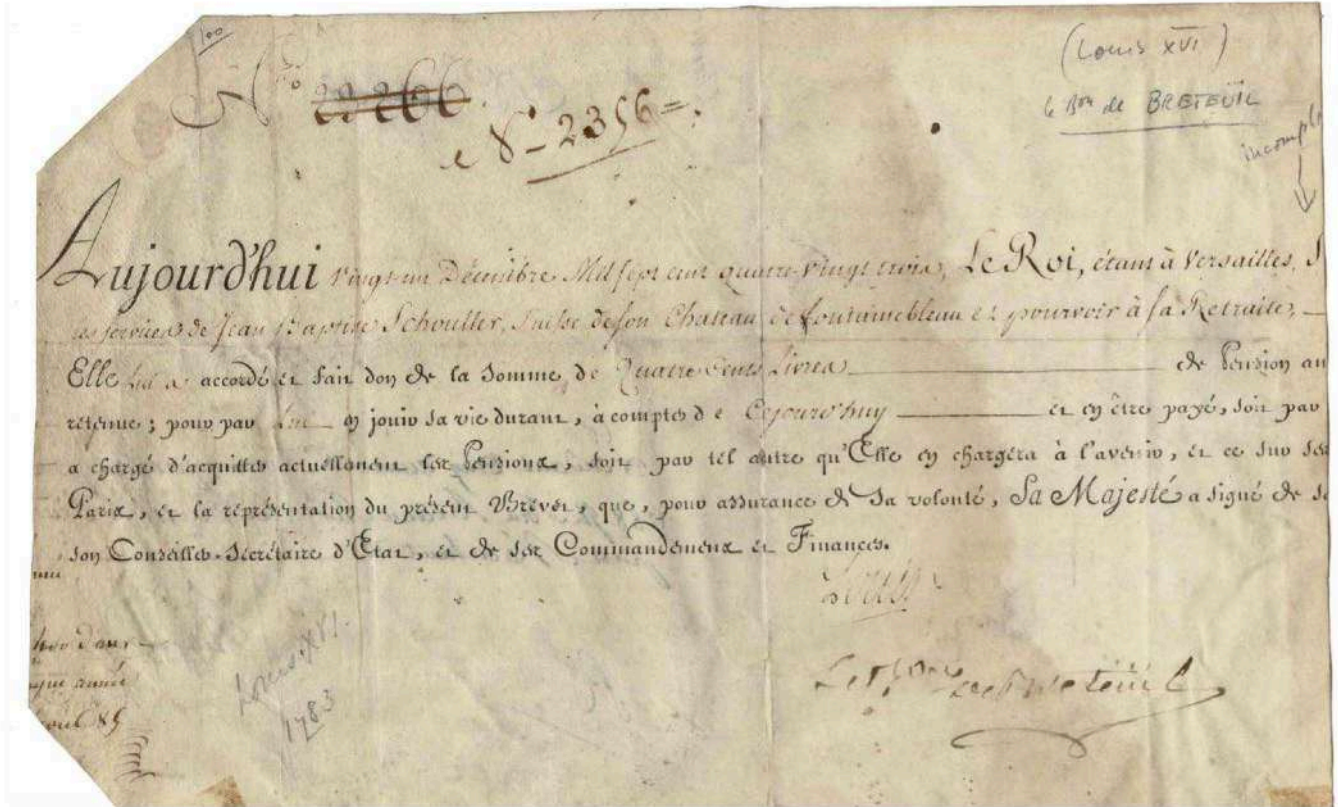 100
22266
N° 2356=
(Louis XVI)
le Bon de BRETEÜIL
incompl
Aujourd'hui vingt un Décembre Mil sept cent quatre-vingt trois, Le Roi, étant à Versailles, S
les services de Jean Baptiste Schouller, Suisse de son Chateau de fontainebleau et pourvoir à sa Retraite,
Elle lui a accordé et fait don de la Somme de Quatre Cents Livres de Pension an
retenue; pour par lui en jouir sa vie durant, à compter de Cejourd'huy et en être payé, soit par
a chargé d'acquitter actuellement les Pensions, soit par tel autre qu'Elle en chargera à l'avenir, et ce sur ses
Paris, et la représentation du présent Brevet, que, pour assurance de sa volonté, Sa Majesté a signé de sa
son Conseiller-Secrétaire d'Etat, et de ses Commandemens et Finances.
Louis
année
Louis XVI.
1783
Le Bon de Breteüil